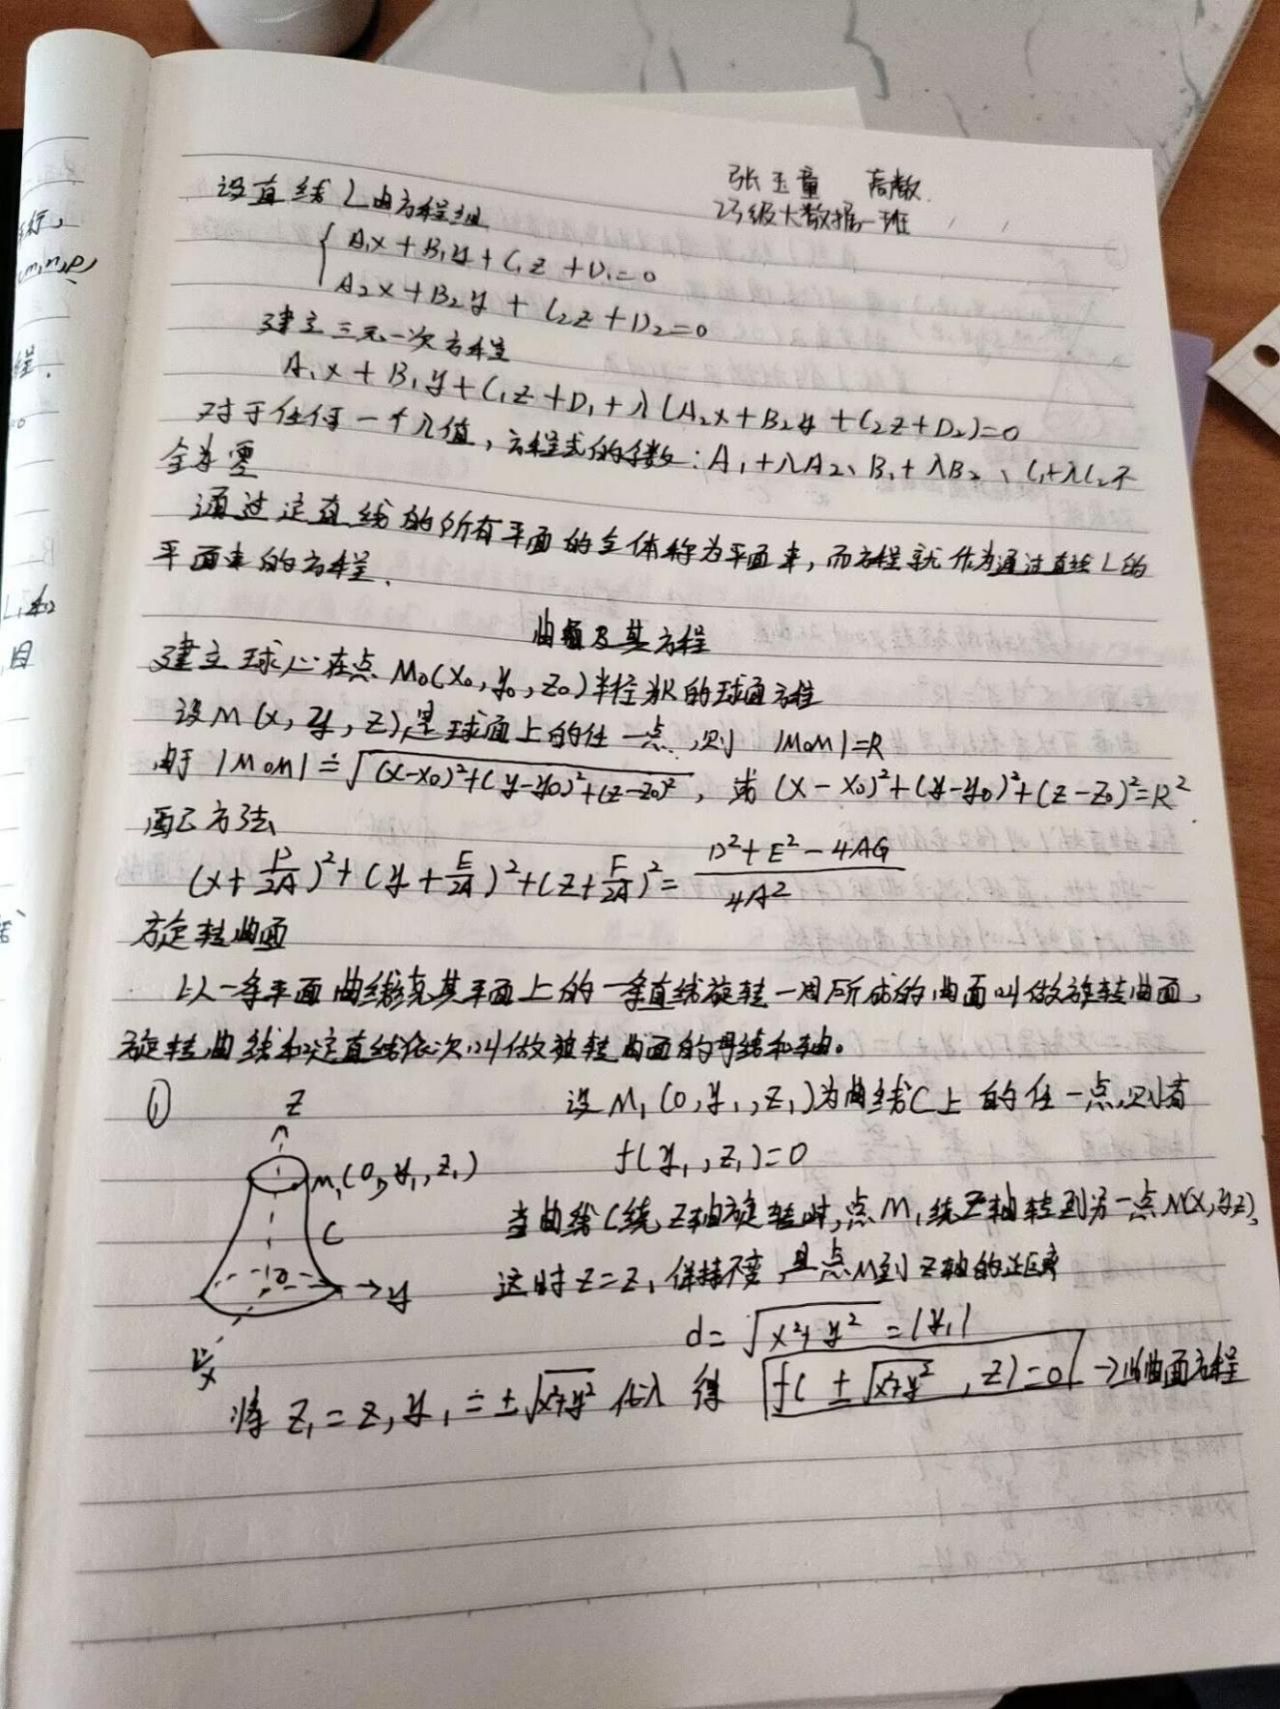 张玉童 高数
23级大数据一班
设直线L由方程组
A₁x+B₁y+C₁z+D₁=0
A₂x+B₂y+C₂z+D₂=0
建立三元一次方程
A₁x+B₁y+C₁z+D₁+λ(A₂x+B₂y+C₂z+D₂)=0
对于任何一个λ值,方程式的系数:A₁+λA₂、B₁+λB₂、C₁+λC₂不
全为零
通过定直线的所有平面的全体称为平面束,而方程就作为通过直线L的
平面束的方程.
曲面及其方程
建立球心在点M₀(x₀,y₀,z₀)半径为R的球面方程
设M(x,y,z)是球面上的任一点,则 |M₀M|=R
由于|M₀M|=√(x-x₀)²+(y-y₀)²+(z-z₀)²,或(x-x₀)²+(y-y₀)²+(z-z₀)²=R²
配方法
(x+D/2A)²+(y+E/2A)²+(z+F/2A)²=D²+E²-4AG/4A²
旋转曲面
以一条平面曲线绕其平面上的一条直线旋转一周所成的曲面叫做旋转曲面,
旋转曲线和定直线依次叫做旋转曲面的母线和轴。
① z
M₁(0,y₁,z₁)
C
0 y
x
设M₁(0,y₁,z₁)为曲线C上的任一点,则有
f(y₁,z₁)=0
当曲线C绕z轴旋转时,点M₁绕z轴转到另一点M(x,y,z),
这时z=z₁保持不变,且点M到z轴的距离
d=√x²+y²=|y₁|
将z₁=z,y₁=±√x²+y²代入 得 f(±√x²+y²,z)=0→曲面方程
行,
(m,n,p)
程.